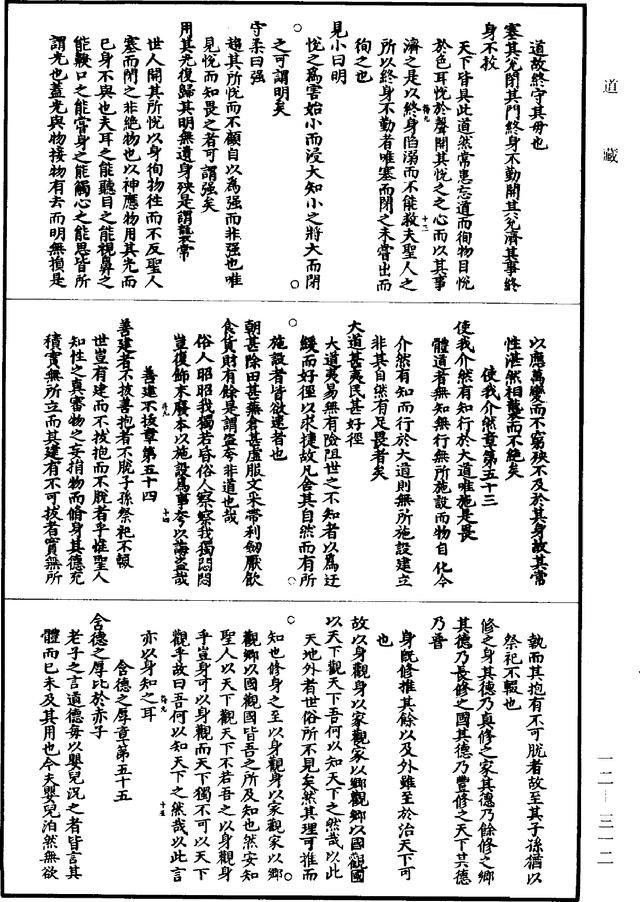 道藏
道故終守其母也
塞其兌閉其門終身不勤開其兌濟其事終
身不救
天下皆具此道然常患忘道而徇物目悅
於色耳悅於聲開其悅之之心而以其事
濟之是以終身陷溺而不能救夫聖人之
所以終身不勤者唯塞而閉之未嘗出而
徇之也
見小曰明
悅之為害始小而浸大知小之將大而閉
之可謂明矣
守柔曰强
趨其所悅而不顧自以為强而非强也唯
見悅而知畏之者可謂强矣
用其光復歸其明無遺身殃是謂襲常
世人開其所悅以身徇物往而不反聖人
塞而閉之非絕物也以神應物用其光而
已身不與也夫耳之能聽目之能視鼻之
能齅口之能嘗身之能觸心之能思皆所
謂光也蓋光與物接物有去而明無損是
以應萬變而不窮殃不及於其身故其常
性湛然相襲而不絕矣
使我介然章第五十三
使我介然有知行於大道唯施是畏
體道者無知無行無所施設而物自化今
介然有知而行於大道則無所施設建立
非其自然有足畏者矣
大道甚夷民甚好徑
大道夷易無有險阻世之不知者以為迂
緩而好徑以求捷故凡舍其自然而有所
施設者皆欲速者也
朝甚除田甚蕪倉甚虛服文采帶利劒厭飲
食貨財有餘是謂盜夸非道也哉
俗人昭昭我獨若昏俗人察察我獨悶悶
豈復飾末廢本以施設為事夸以誨盜哉
善建不拔章第五十四
善建者不拔善抱者不脫子孫祭祀不輟
世豈有建而不拔抱而不脫者乎惟聖人
知性之真審物之妄捐物而脩身其德充
積實無所立而其建有不可拔者實無所
執而其抱有不可脫者故至其子孫猶以
祭祀不輟也
修之身其德乃真修之家其德乃餘修之鄉
其德乃長修之國其德乃豐修之天下其德
乃普
身既修推其餘以及外雖至於治天下可
也
故以身觀身以家觀家以鄉觀鄉以國觀國
以天下觀天下吾何以知天下之然哉以此
天地外者世俗所不見矣然其理可推而
知也修身之至以身觀身以家觀家以鄉
觀鄉以國觀國皆吾之所及知也然安知
聖人以天下觀天下不若吾之以身觀身
乎豈身可以身觀而天下獨不可以天下
觀乎故曰吾何以知天下之然哉以此言
亦以身知之耳
含德之厚章第五十五
含德之厚比於赤子
老子之言道德每以嬰兒況之者皆言其
體而已未及其用也今夫嬰兒泊然無欲
一二—三一二